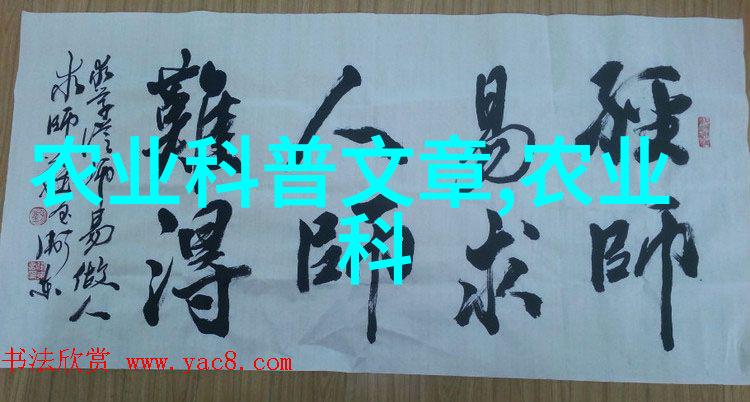 經師
易求
人師
難得
易做人
求師
农业科普文章,农业
科
书法欣赏 www.yac8.com